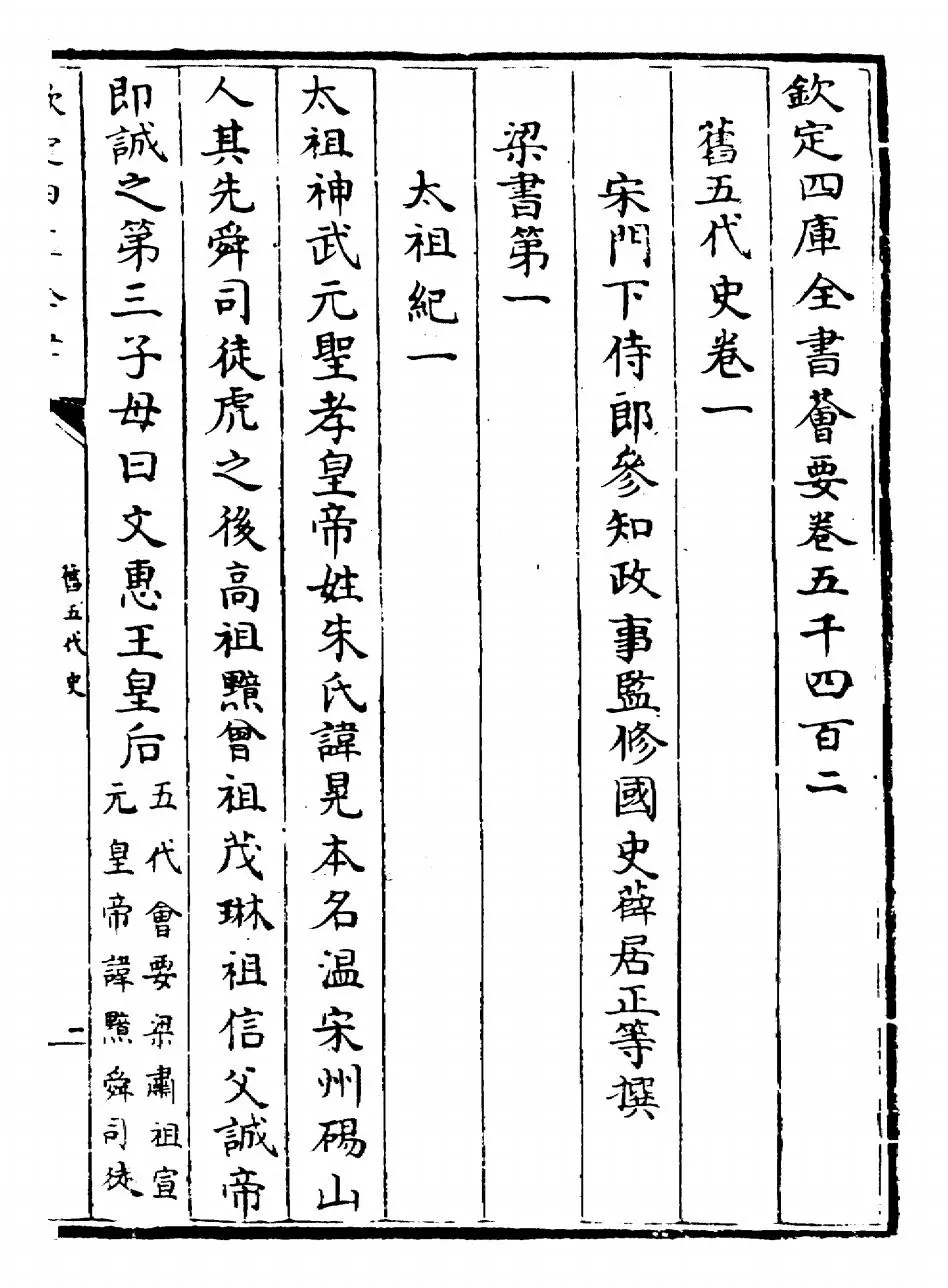 欽定四庫全書薈要卷五千四百二
舊五代史卷一
宋門下侍郎參知政事監修國史薛居正等撰
梁書第一
太祖紀一
太祖神武元聖孝皇帝姓朱氏諱晃本名温宋州碭山
人其先舜司徒虎之後高祖黯曾祖茂琳祖信父誠帝
即誠之第三子母曰文惠王皇后
五代會要梁肅祖宣
元皇帝諱黯舜司徒
舊五代史
二